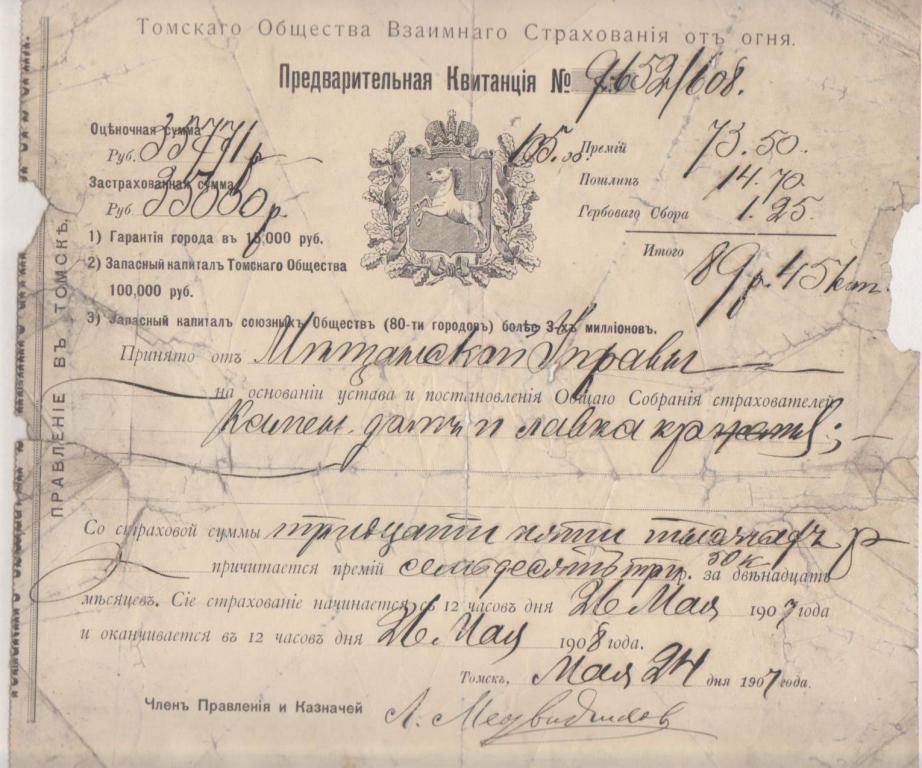 Томскаго Общества Взаимнаго Страхованія отъ огня.
Предварительная Квитанція № 9652/608.
Оцѣночная сумма
Руб. 35771 р
Застрахованная сумма
Руб. 35000 р.
1) Гарантія города въ 15,000 руб.
2) Запасный капиталъ Томскаго Общества
100,000 руб.
3) Запасный капиталъ союзныхъ Обществъ (80-ти городовъ) болѣе 3-хъ милліоновъ.
105.00. Премій 73.50.
Пошлинъ 14.70.
Гербоваго Сбора 1.25.
Итого 89 р. 45 коп.
ПРАВЛЕНІЕ ВЪ ТОМСКѢ.
Принято отъ Мѣщанской Управы
на основаніи устава и постановленія Общаго Собранія страхователей
Камен. домъ и лавка
Со страховой суммы тридцати пяти тысячъ р
причитается премій семьдесятъ три р. 50 к за двѣнадцать
мѣсяцевъ. Сіе страхованіе начинается съ 12 часовъ дня 26 Мая 1907 года
и оканчивается въ 12 часовъ дня 26 Мая 1908 года.
Томскъ, Мая 24 дня 1907 года.
Членъ Правленія и Казначей